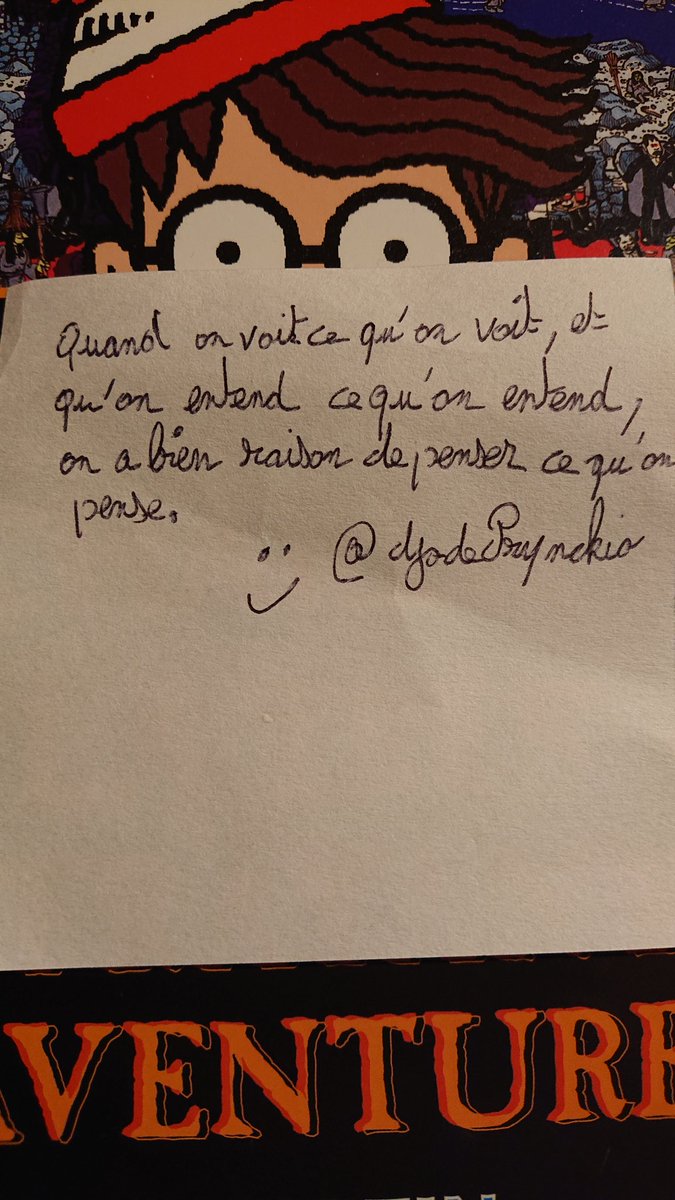 Quand on voit ce qu'on voit, et
qu'on entend ce qu'on entend,
on a bien raison de penser ce qu'on
pense.
:) @djodePrynckio
AVENTURE